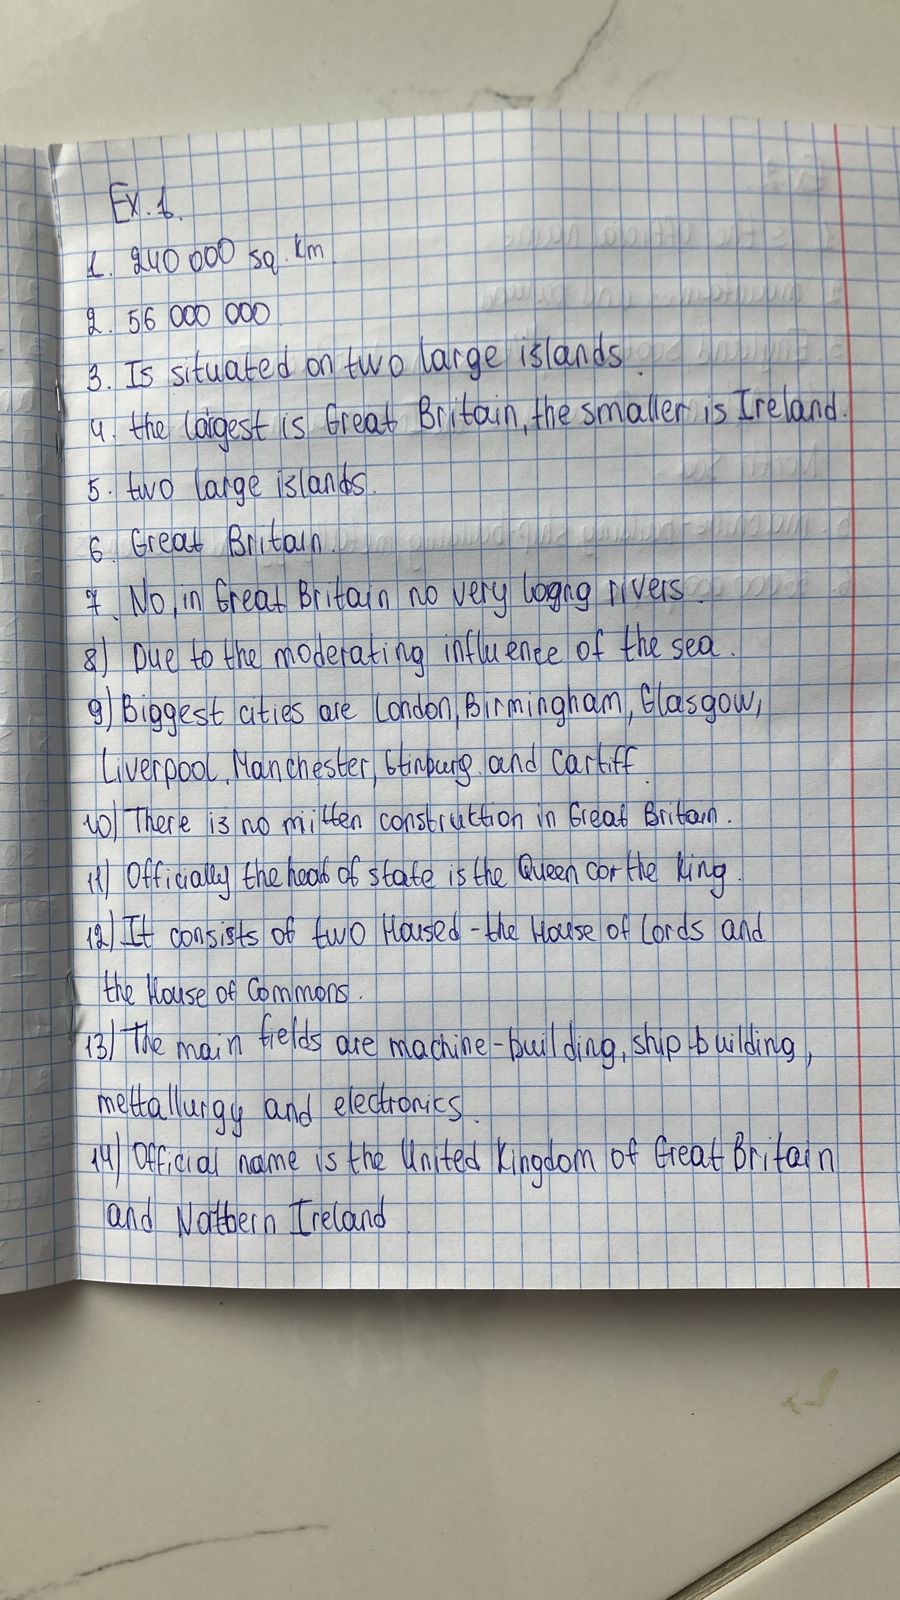 Ex. 1.
1. 240 000 sq. km.
2. 56 000 000.
3. Is situated on two large islands.
4. the largest is Great Britain, the smaller is Ireland.
5. two large islands.
6. Great Britain.
7. No, in Great Britain no very logng rivers.
8) Due to the moderating influence of the sea.
9) Biggest cities are London, Birmingham, Glasgow,
Liverpool, Manchester, and Cartiff.
10) There is no mitten construction in Great Britain.
11) Officially the head of state is the Queen or the King.
12) It consists of two Housed - the House of Lords and
the House of Commons.
13) The main fields are machine-building, ship-building,
mettallurgy and electronics.
14) Official name is the United Kingdom of Great Britain
and Ireland